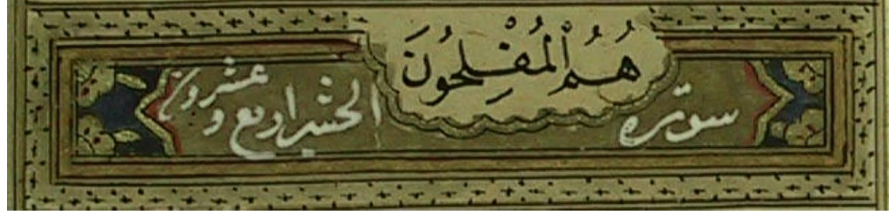 هُمُ ٱلْمُفْلِحُونَ
سورة الحشر اربع و عشرون